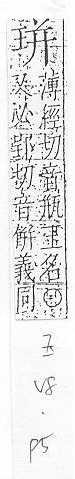 薄經切音瓶玉名
又必郢切音餅義同
五
V8
.
P5